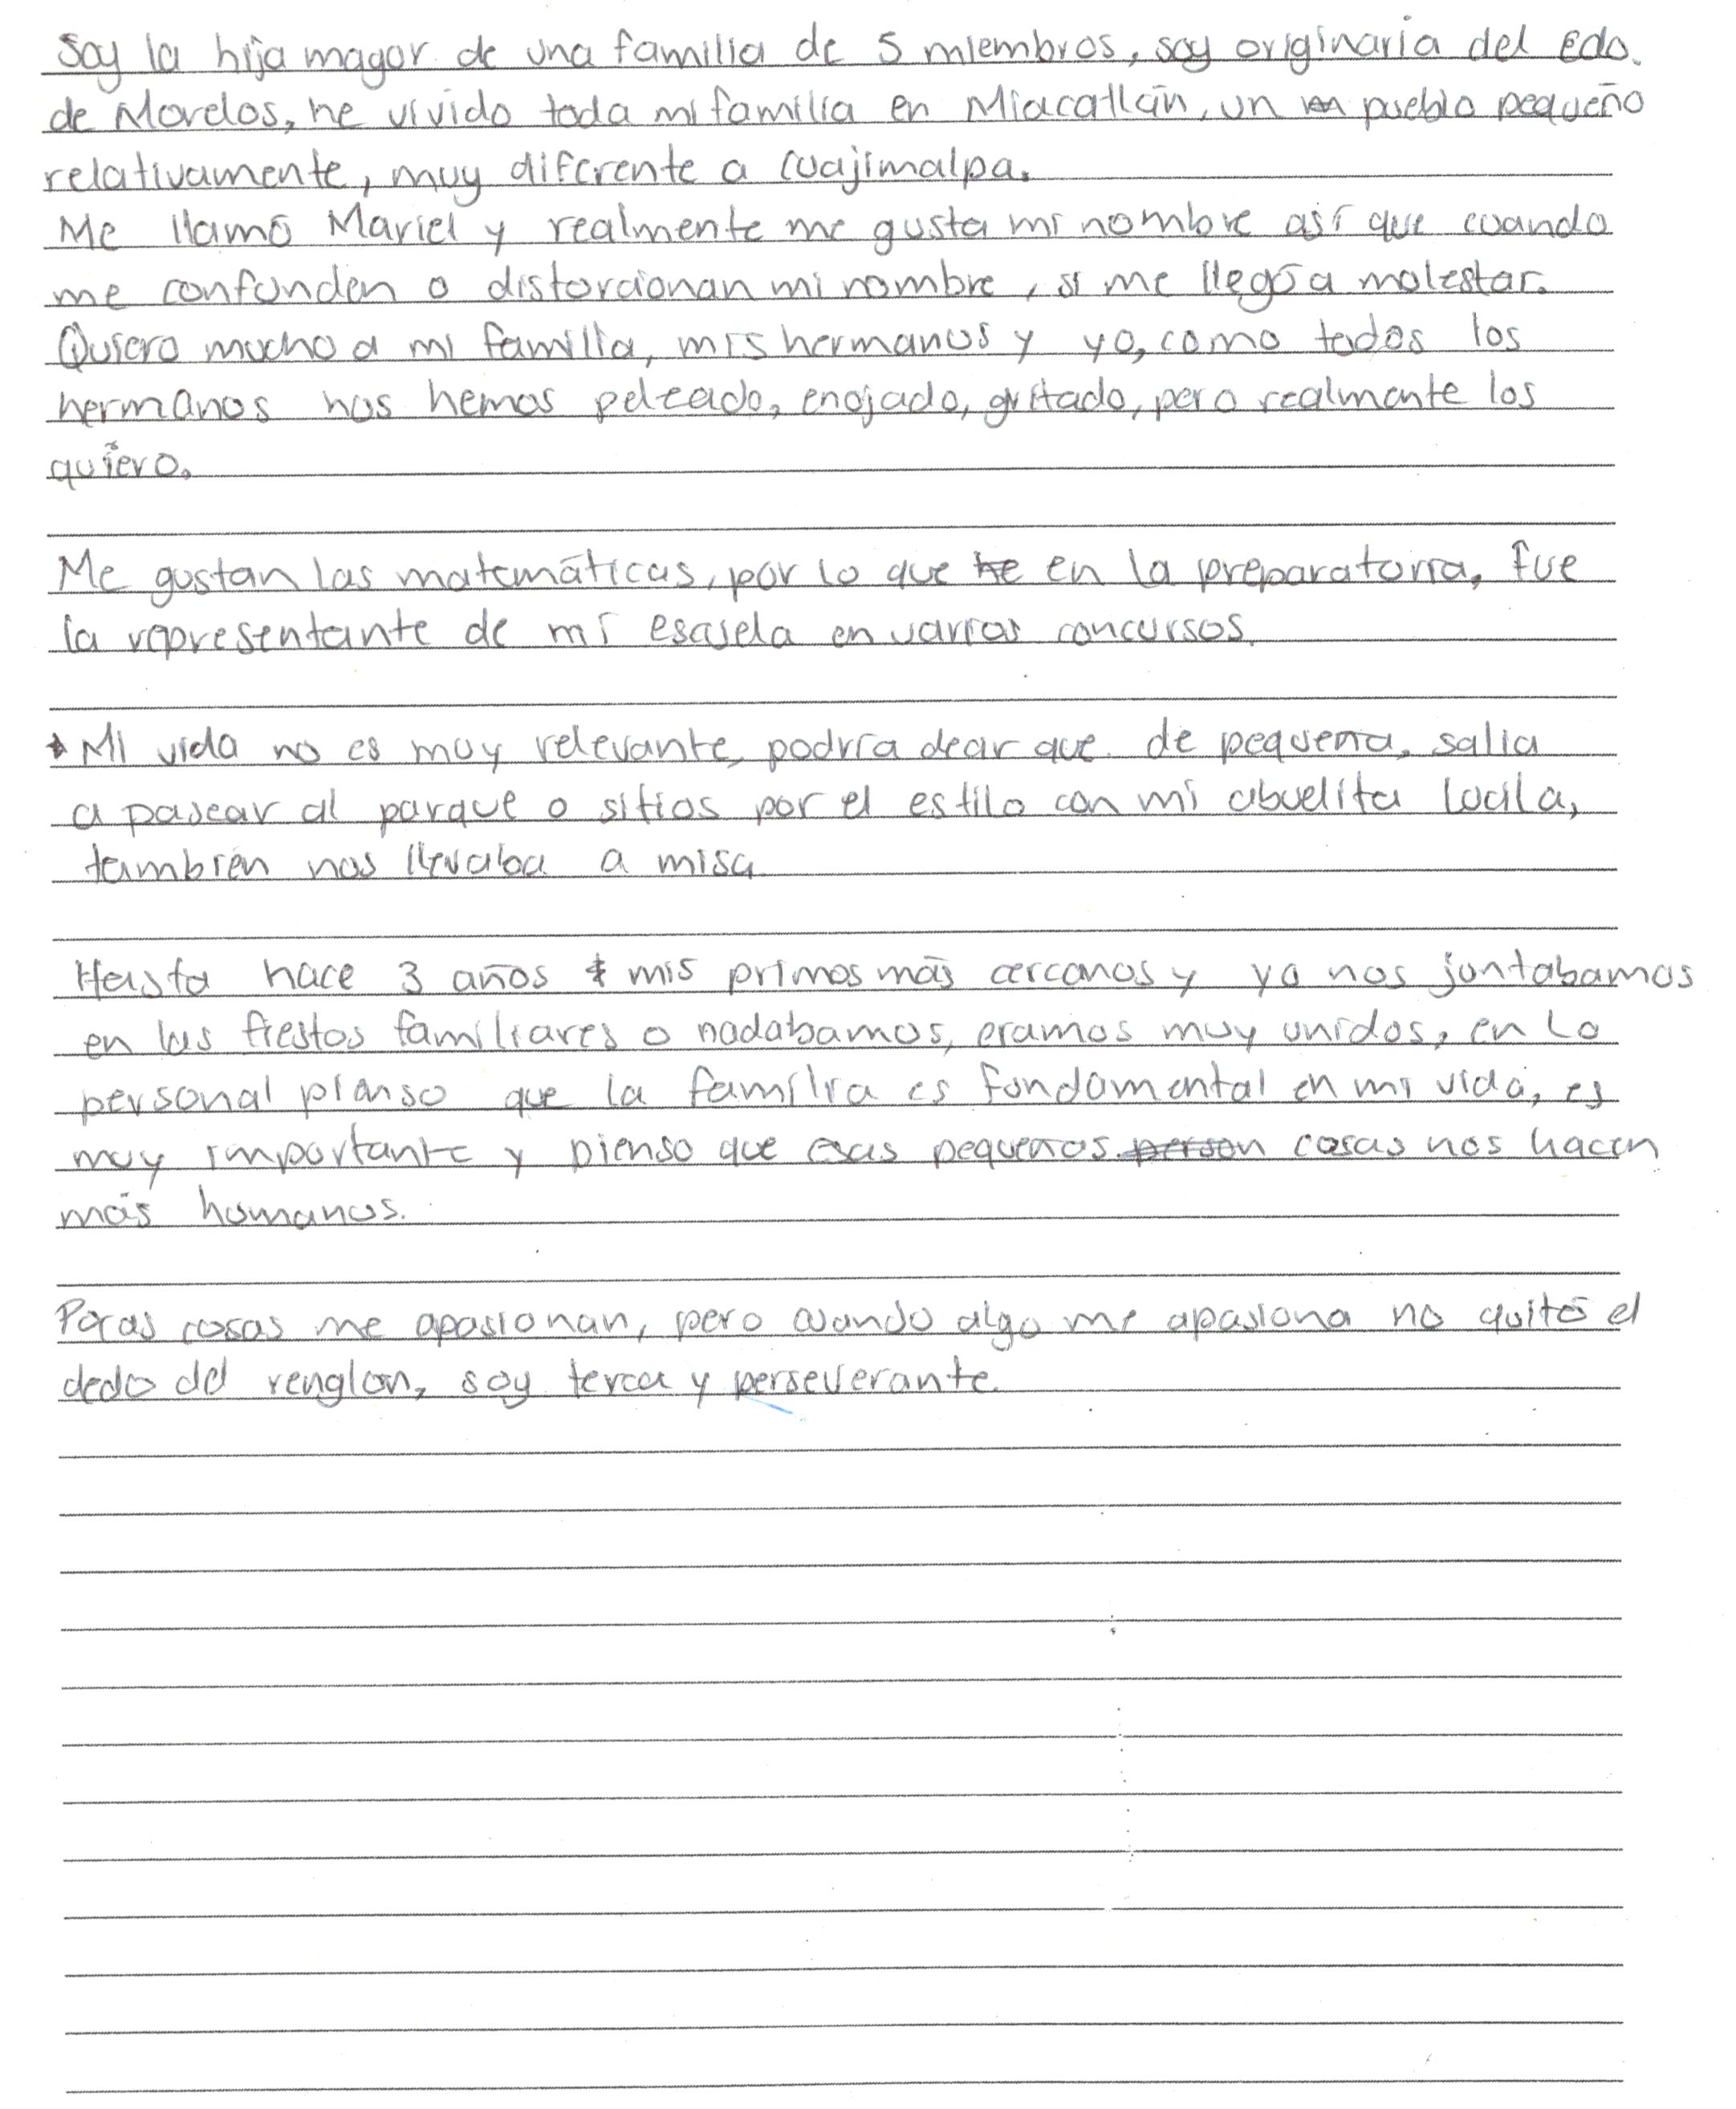 Soy la hija mayor de una familia de 5 miembros, soy originaria del Edo.
de Morelos, he vivido toda mi familia en Miacatlán, un pueblo pequeño
relativamente, muy diferente a Cuajimalpa.
Me llamó Mariel y realmente me gusta mi nombre así que cuando
me confunden o distorcionan mi nombre, si me llegó a molestar.
Quiero mucho a mi familia, mis hermanos y yo, como todos los
hermanos nos hemos peleado, enojado, gritado, pero realmente los
quiero.
Me gustan las matemáticas, por lo que en la preparatoria, fue
la representante de mi escuela en varios concursos.
Mi vida no es muy relevante, podría decir que de pequeña, salia
a pasear al parque o sitios por el estilo con mi abuelita Lucila,
también nos llevaba a misa
Hasta hace 3 años mis primos más cercanos y yo nos juntabamos
en las fiestas familiares o nadabamos, eramos muy unidos, en lo
personal pienso que la familia es fundamental en mi vida, es
muy importante y pienso que esas pequeños cosas nos hacen
más humanos.
Pocas cosas me apasionan, pero cuando algo me apasiona no quitó el
dedo del renglon, soy terca y perseverante.